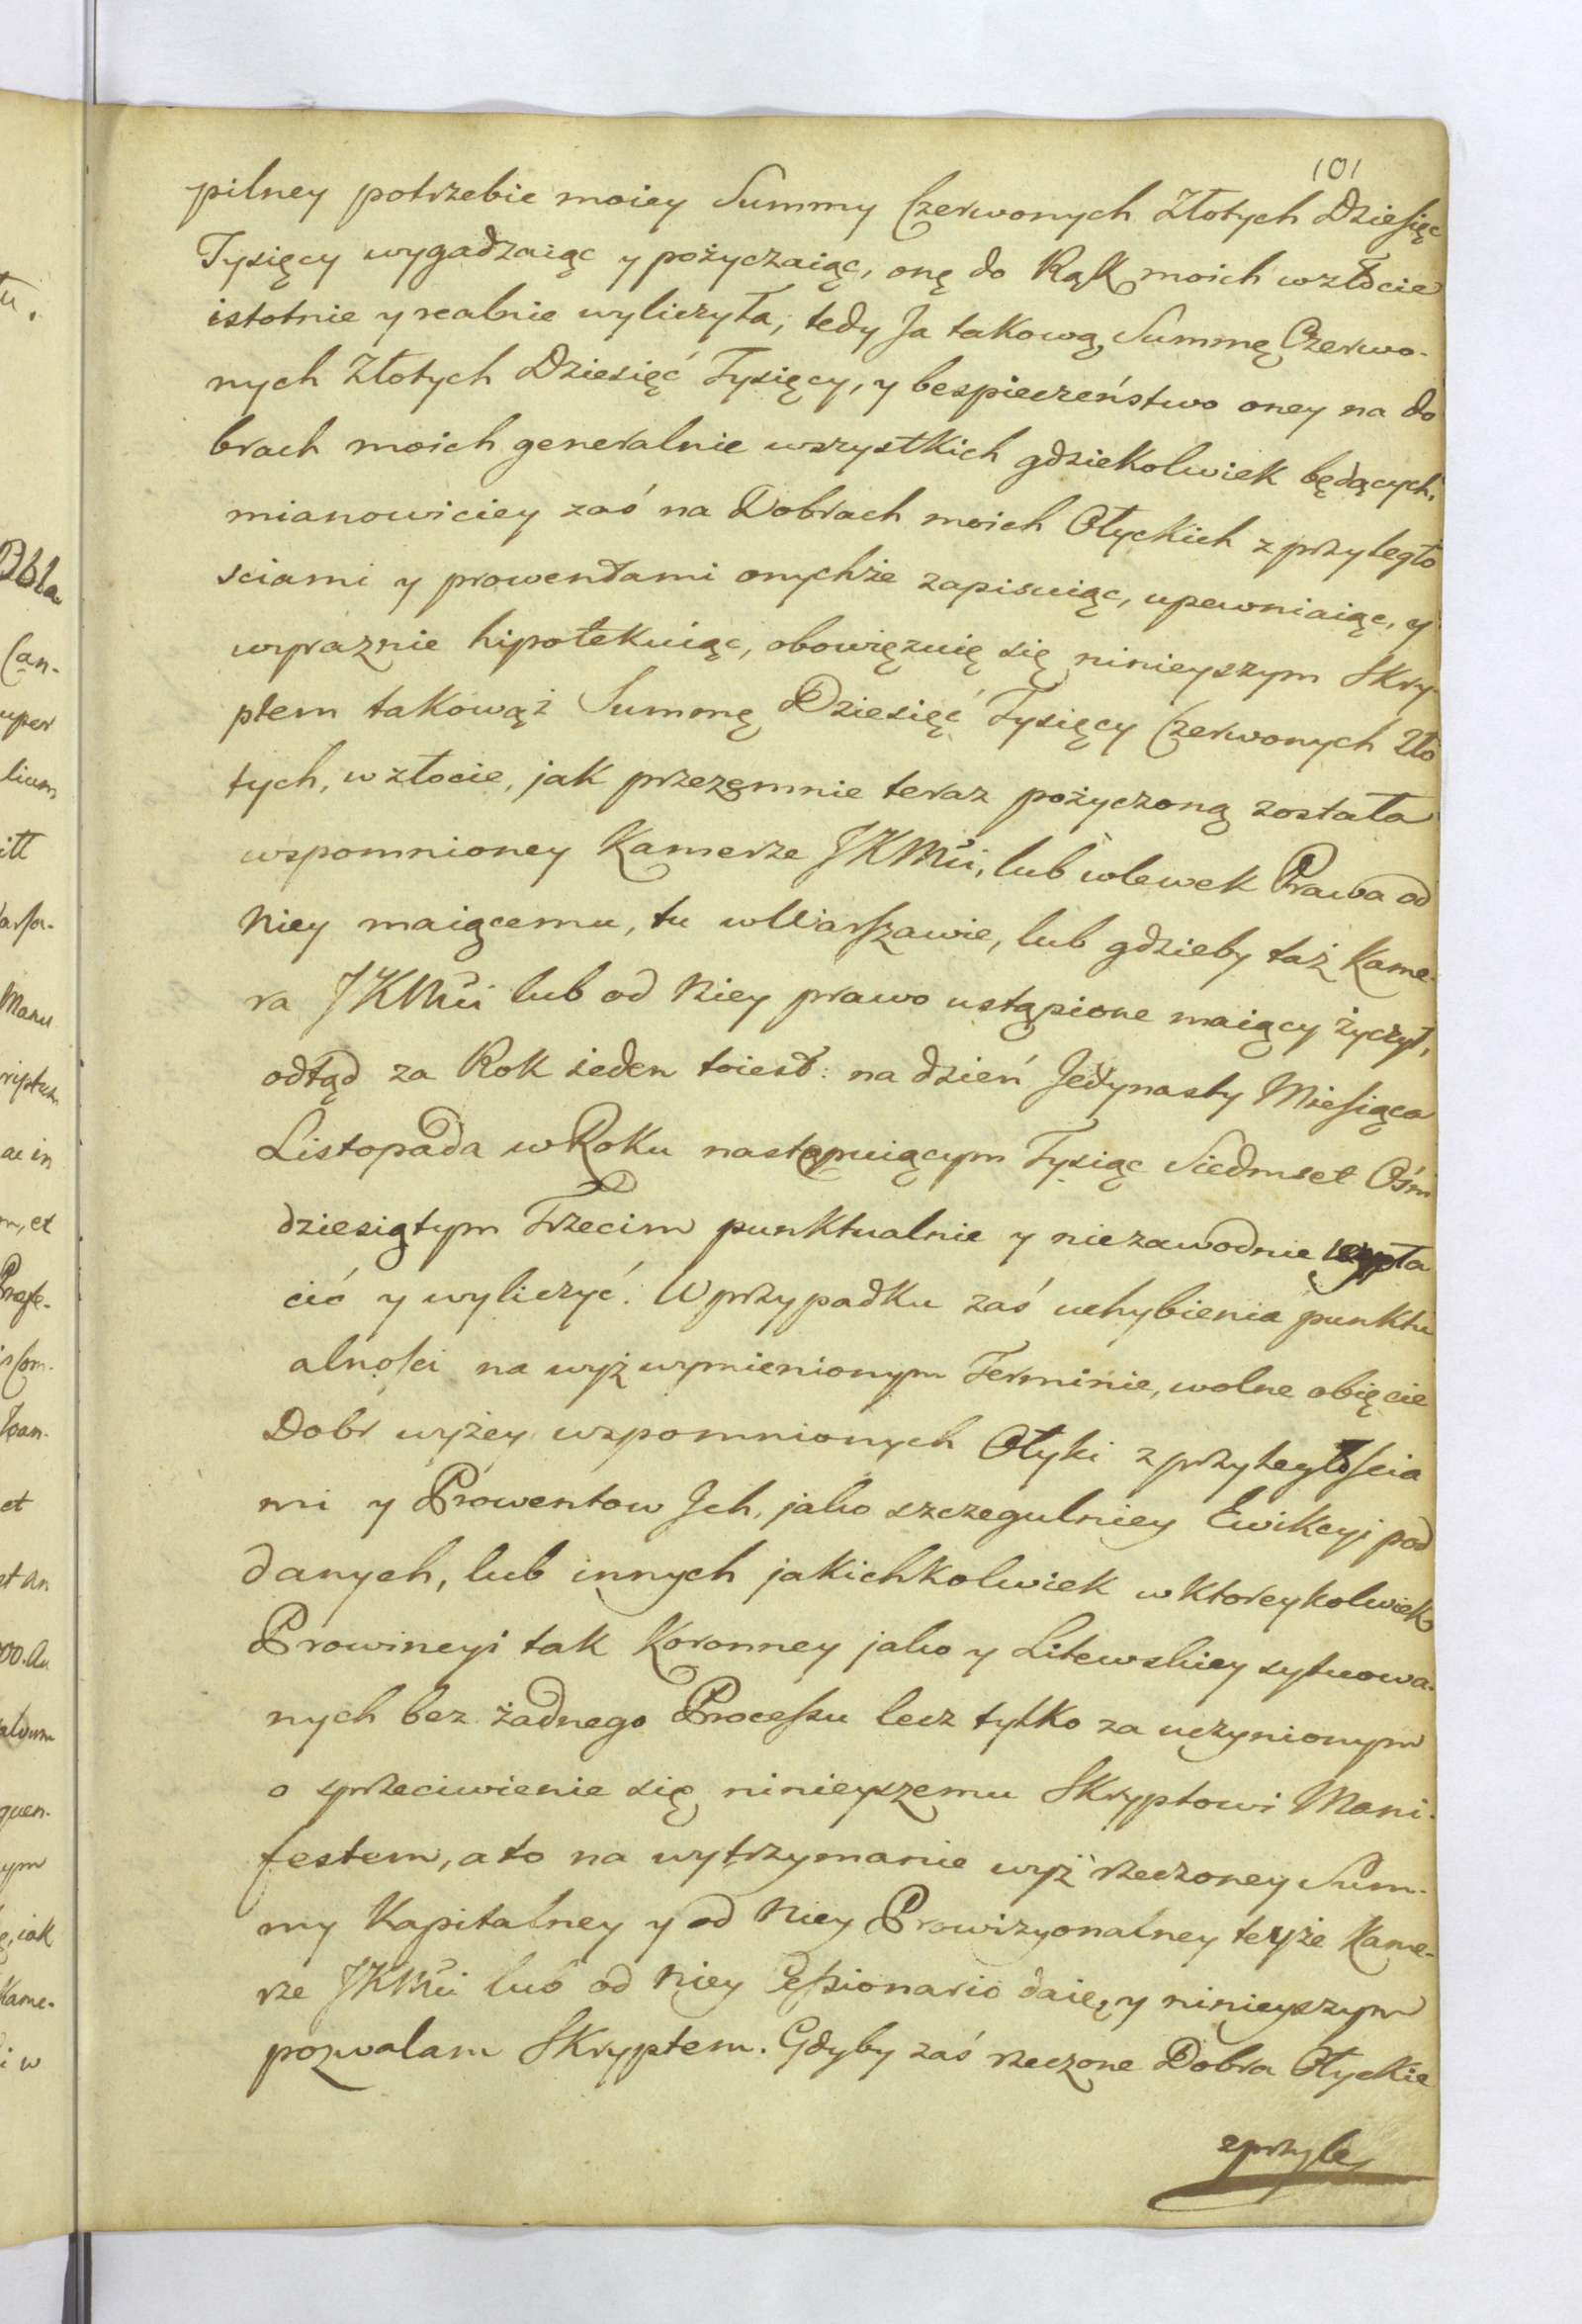 101
pilney potrzebie moiey Summy Czerwonych Złotych Dziesięc
Tysięcy wygadzaiąc y pożyczaiąc, onę do Rąk moich w złocie
istotnie y realnie wyliczyła, tedy Ja takową Summę Czerwo-
nych Złotych Dziesięć Tysięcy, y bespieczeństwo oney na do
brach moich generalnie wszystkich gdziekolwiek będących,
mianowiciey zaś na Dobrach moich Ołyckich z przyległo
sciami y prowentami onychże zapisuiąc, upewniaiąc, y
wyraznie hipotekuiąc, obowięzuię się ninieyszym Skry-
ptem takowąż Summę Dziesięć Tysięcy Czerwonych Zło
tych, w złocie, jak przezemnie teraz pożyczoną została
wspomnioney Kamerze JKMci, lub wlewek Prawa od
Niey maiącemu, tu w Warszawie, lub gdzieby taż Kame-
ra JKMci lub od Niey prawo ustąpione maiący życzył,
odtąd za Rok ieden toiest: na dzień Jedynasty Miesiąca
Listopada w Roku następuiącym Tysiąc Siedmset Ośm
dziesiątym Trzecim punktualnie y niezawodnie wypła
cić y wyliczyć. W przypadku zaś uchybienia punktu
alności na wyż wymienionym Terminie, wolne obięcie
Dobr wyżey wspomnionych Ołyki z przyległościa
mi y Prowentow Jch, jako szczegulniey Ewikcyi pod
danych, lub innych jakichkolwiek w ktoreykolwiek
Prowincyi tak Koronney jako y Litewskiey sytuowa-
nych bez żadnego Processu lecz tylko za uczynionym
o sprzeciwienie się ninieyszemu Skryptowi Mani-
festem, a to na wytrzymanie wyż rzeczoney Sum-
my Kapitalney y od Niey Prowizyonalney teyże Kame-
rze JKMci lub od Niey Cessionario daię, y ninieyszym
pozwalam Skryptem. Gdyby zaś rzeczone Dobra Ołyckie
z przyle